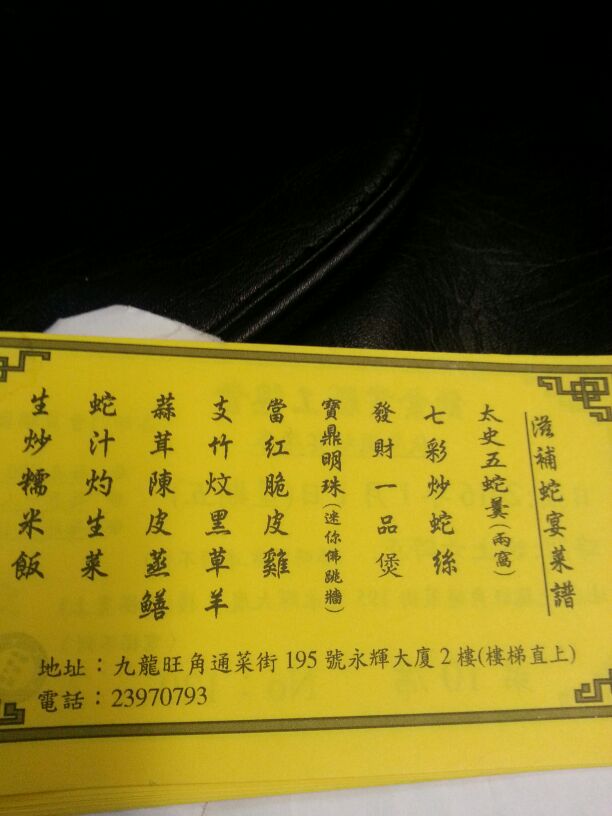 滋補蛇宴菜譜
太史五蛇羹(兩窩)
七彩炒蛇絲
發財一品煲
寶鼎明珠(迷你佛跳牆)
當紅脆皮雞
支竹炆黑草羊
蒜茸陳皮蒸鱔
蛇汁灼生菜
生炒糯米飯
地址：九龍旺角通菜街 195 號永輝大廈 2 樓(樓梯直上)
電話：23970793